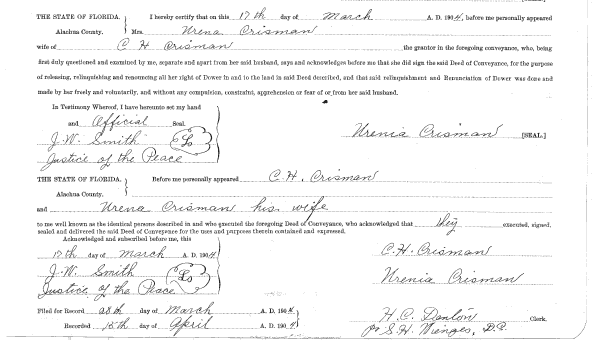 THE STATE OF FLORIDA. } I hereby certify that on this 17th day of March A. D. 1904, before me personally appeared
Alachua County. Mrs. Urena Crisman
wife of C H Crisman the grantor in the foregoing conveyance, who, being
first duly questioned and examined by me, separate and apart from her said husband, says and acknowledges before me that she did sign the said Deed of Conveyance, for the purpose
of releasing, relinquishing and renouncing all her right of Dower in and to the land in said Deed described, and that said relinquishment and Renunciation of Dower was done and
made by her freely and voluntarily, and without any compulsion, constraint, apprehension or fear of or from her said husband.
In Testimony Whereof, I have hereunto set my hand
and Official Seal.
J. W. Smith Ls
Justice of the Peace
Urenia Crisman [SEAL.]
THE STATE OF FLORIDA. } Before me personally appeared C. H. Crisman
Alachua County.
and Urena Crisman his wife
to me well known as the identical persons described in and who executed the foregoing Deed of Conveyance, who acknowledged that they executed, signed,
sealed and delivered the said Deed of Conveyance for the uses and purposes therein contained and expressed.
Acknowledged and subscribed before me, this
17th day of March A. D. 1904
C. H. Crisman
J. W. Smith Ls
Urenia Crisman
Justice of the Peace
Filed for Record 28th day of March A. D. 1904
H. C. Denton Clerk.
Recorded 15th day of April A. D. 1904
pr S. H. Wienges, D.C.